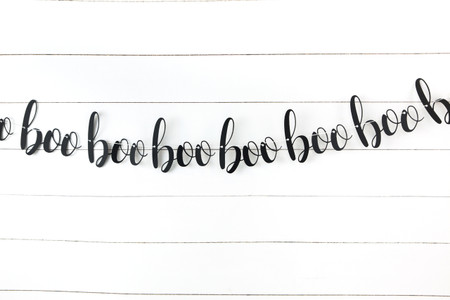 o boo boo boo boo boo boo b